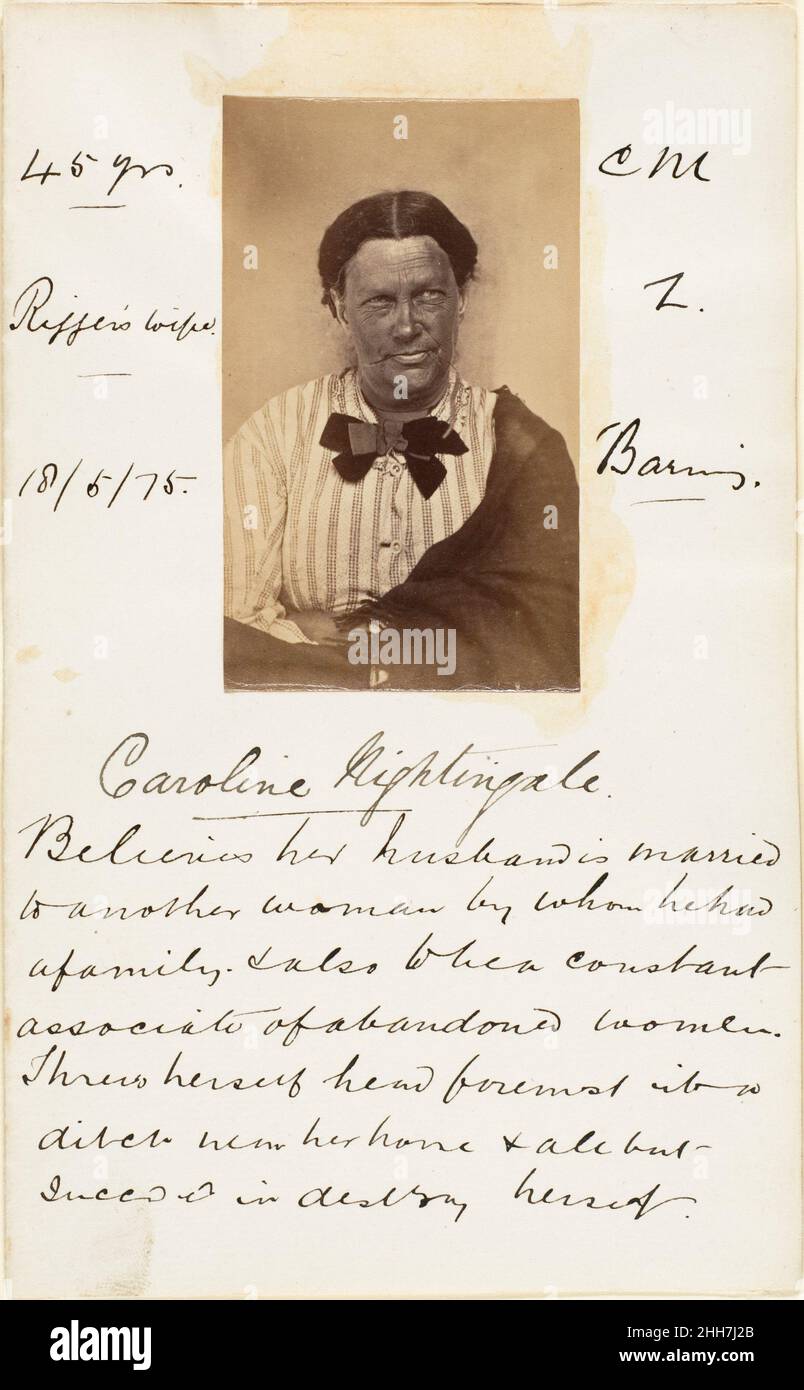 45 yrs.
CM
Rigger's wife.
L.
18/5/75.
Barnes.
Caroline Nightingale.
Believes her husband is married
to another woman by whom he had
a family. & also to be a constant
associate of abandoned women.
Threw herself head foremost into a
ditch near her home & all but
succeed in destroy herself.
alamy
alamy
alamy
Image ID: 2HH7J2B
www.alamy.com